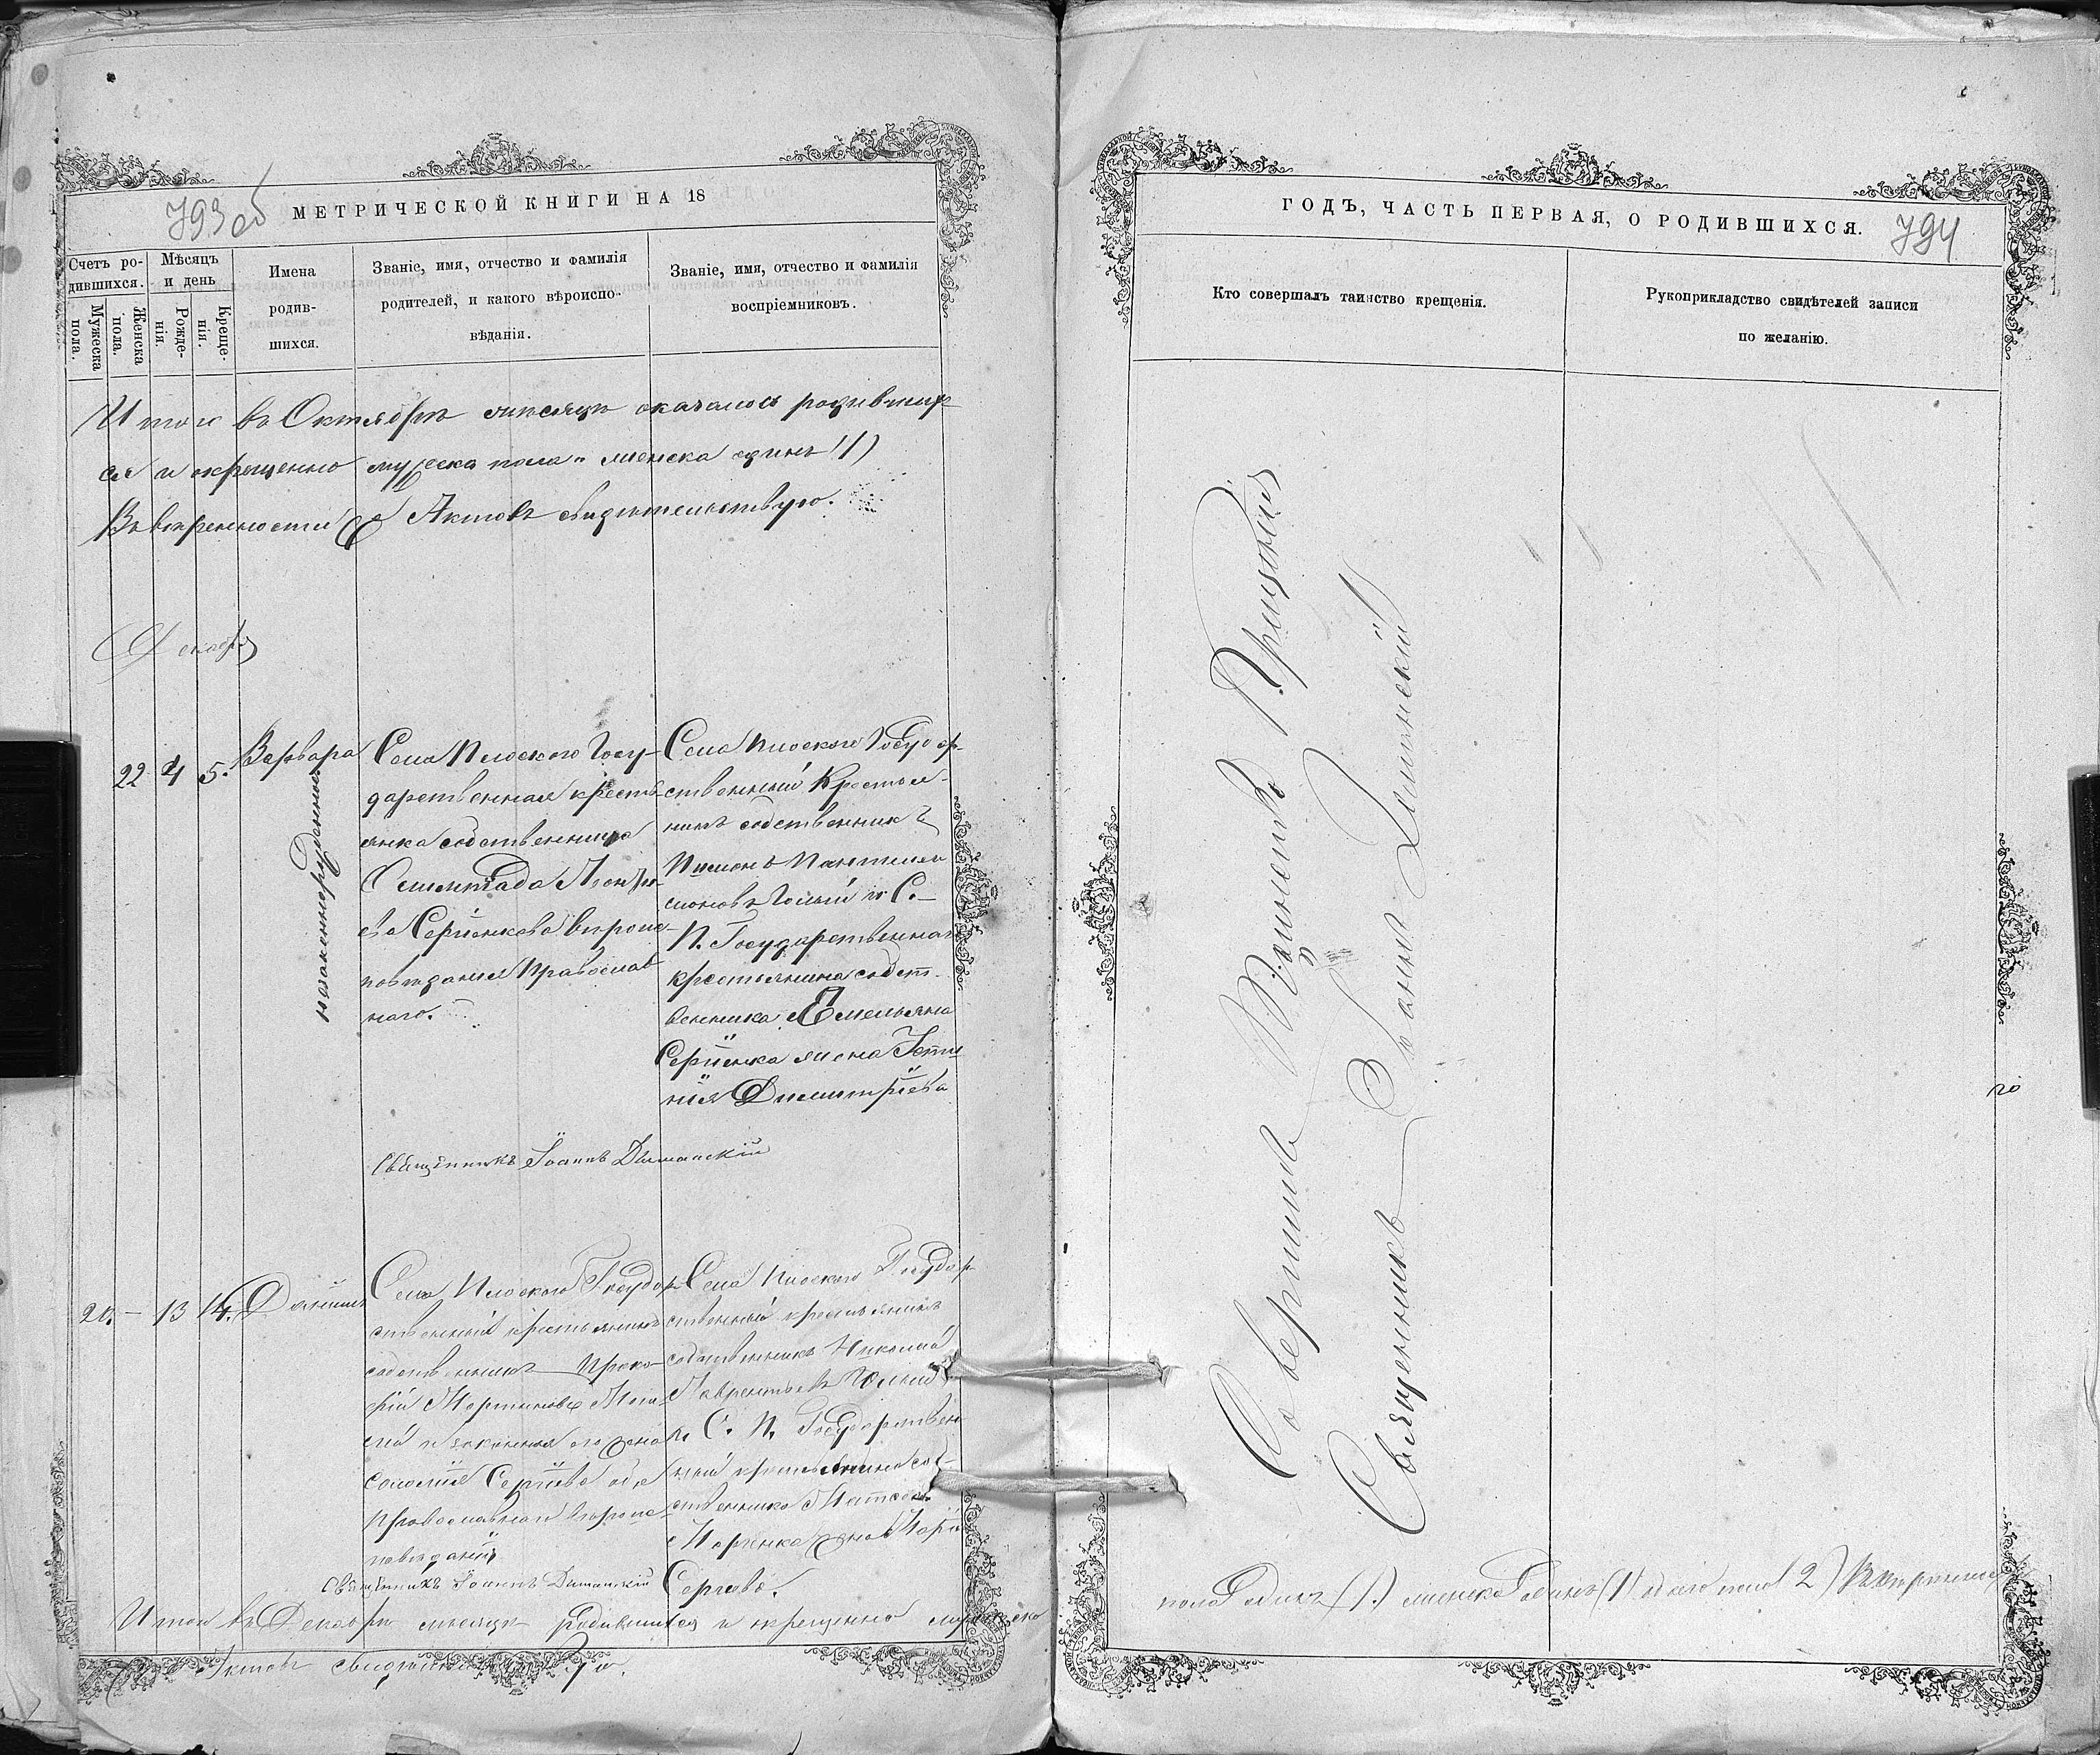 793 об
МЕТРИЧЕСКОЙ КНИГИ НА 18
Счетъ ро-
дившихся.
Мужеска
пола.
Женска
пола.
Мѣсяцъ
и день
Рожде-
нія.
Креще-
нія.
Имена
родив-
шихся.
Званіе, имя, отчество и фамилія
родителей, и какого вѣроиспо-
вѣданія.
Званіе, имя, отчество и фамилія
воспріемниковъ.
Итого въ Октябрѣ мѣсяцѣ оказалось родивших
ся и окрещенно мужеска пола " женска одинъ (1)
Въ вѣрности Актовъ свидѣтельствую.
Декабрь
22 4 5. Варвара
незаконнорожденная
Села Плоскаго Госу-
дарственная кресть-
янка собственница
ева Серпенкова вѣроис-
повѣданія Православ
наго.
Села Плоскаго Государ
ственный Крестья-
нинъ собственникъ
Пименъ Пантелеи
моновъ Голый и С.
П. Государственнаго
крестьянина собст-
венника Емельяна
Серпенка жена Усти
нія Димитріева
Священникъ Іоаннъ Диманскій
20. — 13 14. Даніилъ
Села Плоскаго Государ
ственный крестьянинъ
собственникъ Проко-
фій Мартиновъ
и законная его жена
Соломія Сергіева оба
Православнаго вѣроис-
повѣданія
Села Плоскаго Государ
ственный крестьянинъ
собственникъ Николай
Лаврентьевъ Голый
и С. П. Государствен
ный крестьянина соб-
ственника Матвея
Марченка жена Марія
Сергіева.
Священникъ Іоаннъ Диманскій
Итого въ Декабрѣ мѣсяцѣ родившихся и крещенно мужеско
Актовъ свидѣтельствую.
ГОДЪ, ЧАСТЬ ПЕРВАЯ, О РОДИВШИХСЯ.
794
Кто совершалъ таинство крещенія.
Рукоприкладство свидѣтелей записи
по желанію.
Совершилъ Таинство Крещенія
Священникъ Іоаннъ Диманскій
пола Одинъ (1.) женска Одинъ (1) обоего пола (2) Въ вѣрности